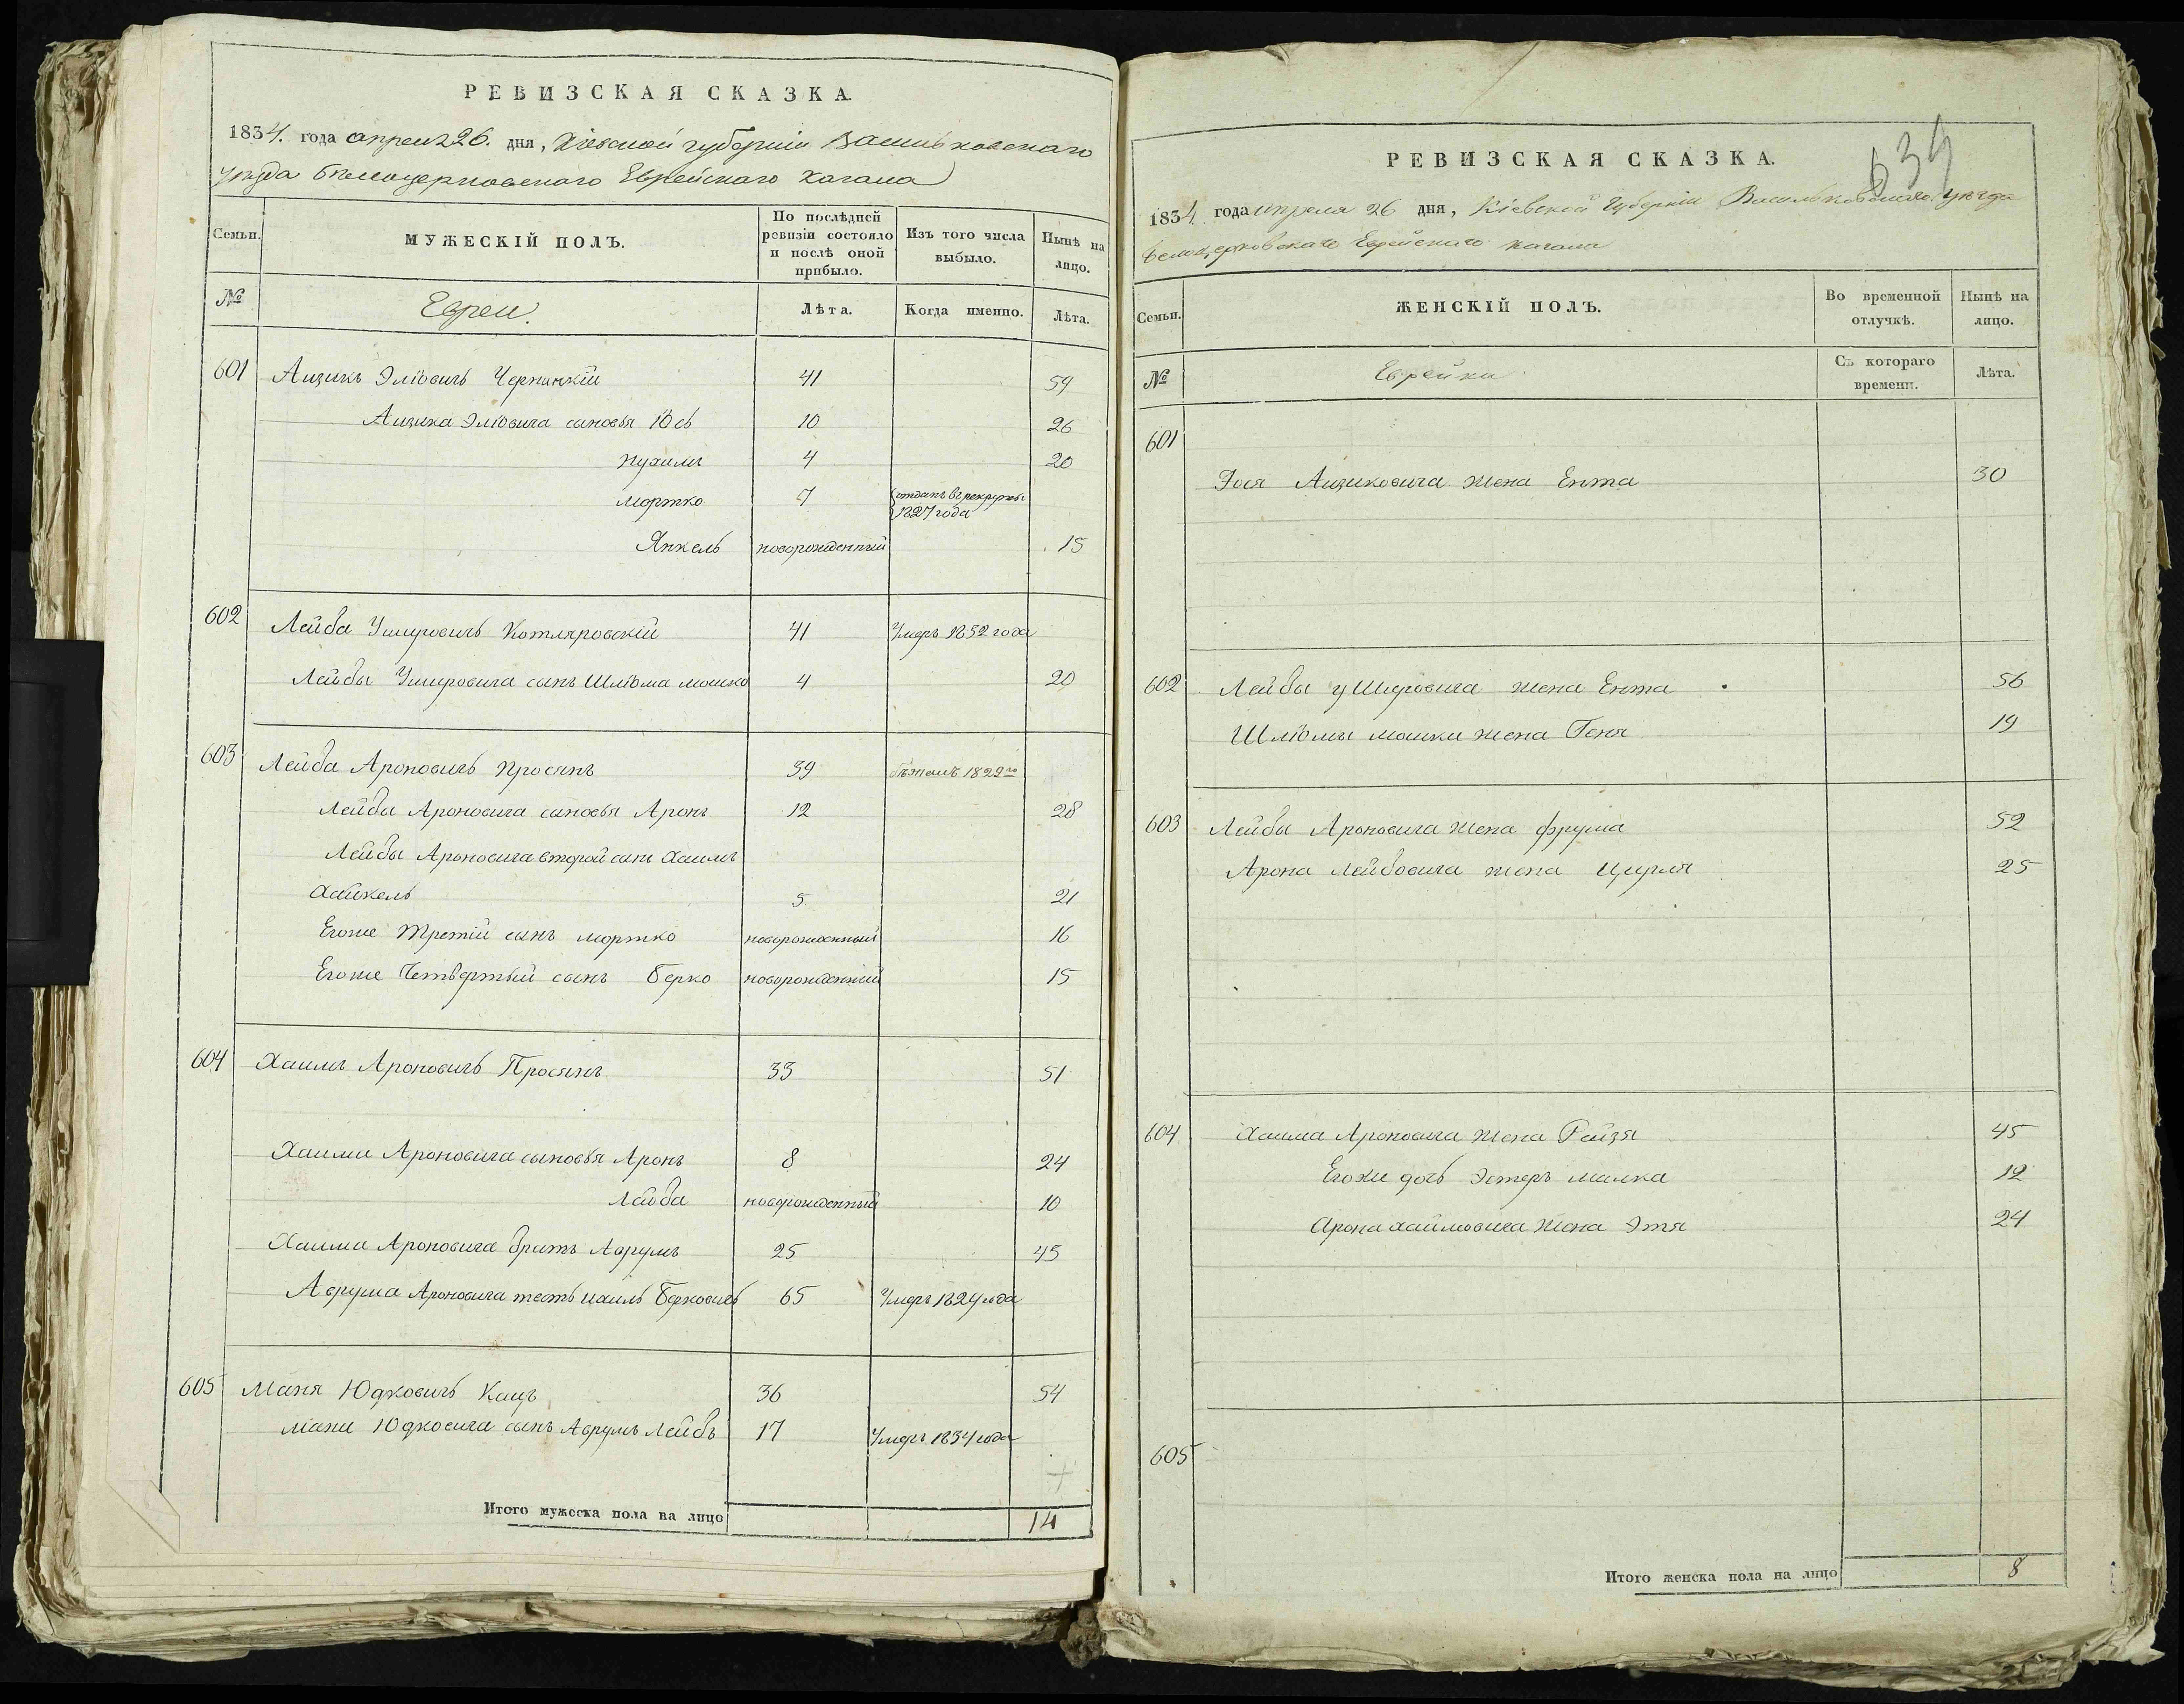 РЕВИЗСКАЯ СКАЗКА.
1834. года апреля 26. дня, Кіевской губерніи Васильковскаго
уезда Белоцерковскаго Еврейскаго Кагала
Семьи.
МУЖЕСКІЙ ПОЛЪ.
По послѣдней ревизіи состояло и послѣ оной прибыло.
Изъ того числа выбыло.
Нынѣ на лицо.
№
Евреи.
Лѣта.
Когда именно.
Лѣта.
601 Аизикъ Эліовичъ 41 59
Аизика Эліовича сыновья Іось 10 26
Нухимъ 4 20
Мортко 7 отданъ въ рекруты 1827 года
Янкель новорожденный 15
602 Лейба Ушеровичъ Котляровскій 41 Умеръ 1832 года
Лейбы Ушеровича сынъ Шліома мошко 4 20
603 Лейба Ароновичъ Просянъ 39 бѣжалъ 1829го
Лейбы Ароновича сыновья Аронъ 12 28
Лейбы Ароновича второй сынъ Хаимъ
Хайкель 5 21
Егоже Третій сынъ мортко новорожденный 16
Егоже Четвертый сынъ Берко новорожденный 15
604 Хаимъ Ароновичъ Просянъ 33 51
Хаима Ароновича сыновья Аронъ 8 24
Лейба новорожденный 10
Хаима Ароновича братъ Аврумъ 25 43
Аврума Ароновича тесть Ихиль Берковичъ 65 Умеръ 1824 года
605 Маня Юдковичъ Кацъ 36 54
Мани Юдковича сынъ Аврумъ Лейбъ 17 Умеръ 1834 года
Итого мужеска пола на лицо 14
634
РЕВИЗСКАЯ СКАЗКА.
1834 года апреля 26 дня, Кіевской Губерніи Васильковскаго уезда
Белоцерковскаго Еврейскаго кагала
Семьи.
ЖЕНСКІЙ ПОЛЪ.
Во временной отлучкѣ.
Нынѣ на лицо.
№
Еврейки
Съ котораго времени.
Лѣта.
601
Аизиковича жена Ента 30
602 Лейбы Ушеровича жена Ента 56
Шліомы мошки жена Геня 19
603 Лейбы Ароновича жена фрума 52
Арона Лейбовича жена Цирля 25
604 Хаима Ароновича жена Рейзя 45
Егоже дочь Эстеръ малка 12
Арона хаймовича жена Этя 24
605
Итого женска пола на лицо 8